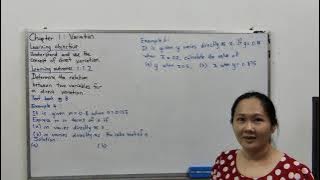 Chapter 1 : Variation
Learning objective
Understand and use the
concept of direct variation.
Learning outcomes 1.1.2
Determine the relation
between two variables for
a direct variation
Text book pg 8
Example 4
It is given m = 0.8 when n = 0.125
Express m in terms of n if
(a) m varies directly as n
(b) m varies directly as the cube root of n
Solution
(a) (b)
Example 6:
It is given y varies directly as x. If y = 0.8
when x = 0.2, calculate the value of
(a) y when x = (b) x when y = 0.875